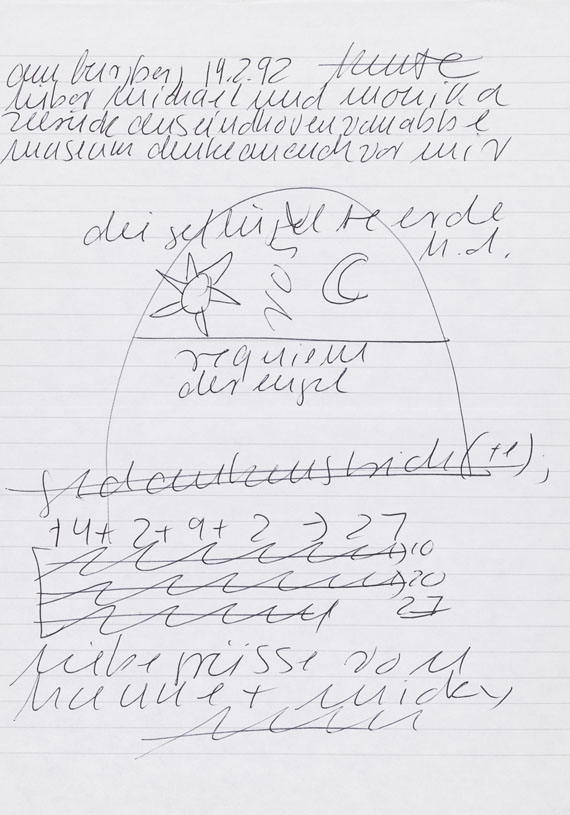 14.2.92
lieber michael und monika
zurück aus eindhoven van abbe
museum denke an euch vor mir
die geflügelte erde
u.d.
requiem
der engel
gedankenstrich (+e),
14+ 2+ 9+ 2 → 27
10
20
27
liebe grüsse von